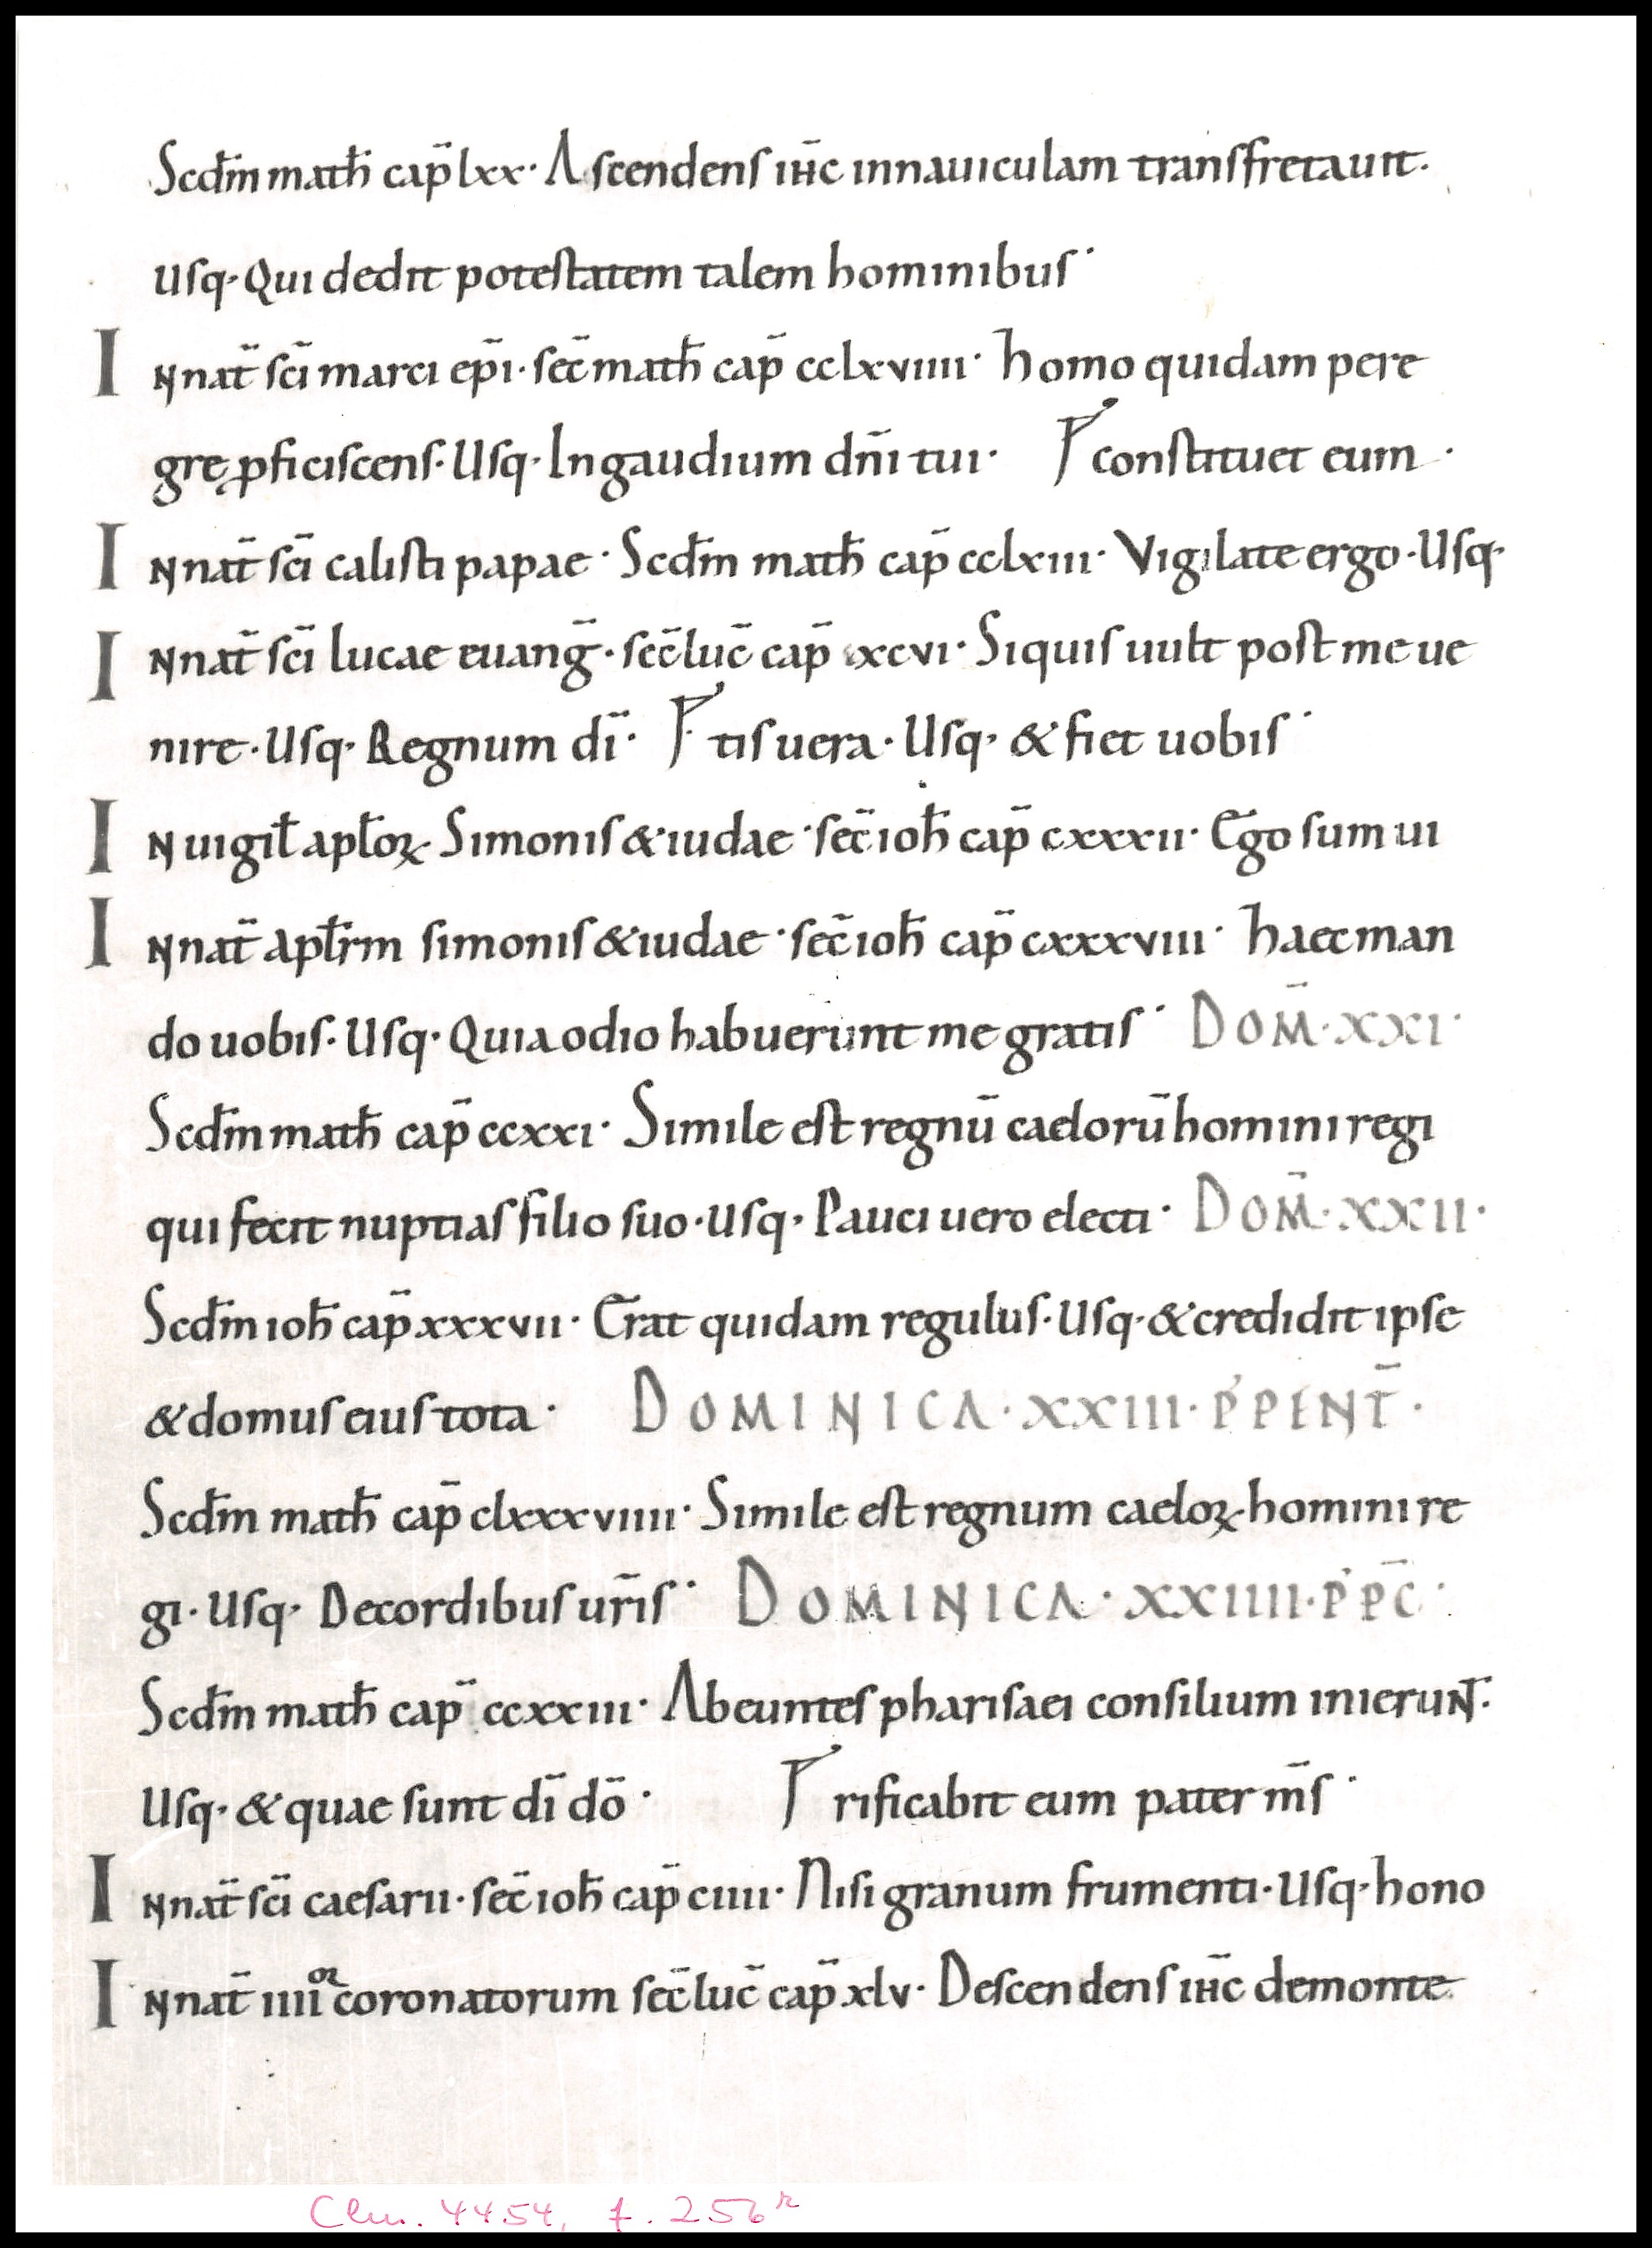 Scdm̄ math̄ cap̄ lxx· Ascendens ih̄c in nauiculam transfretauit·
usq· Qui dedit potestatem talem hominibus·
IN nat̄ sc̄i marci ep̄i· sec̄ math̄ cap̄ cclxviiii· homo quidam pere
grę ꝓficiscens· Usq· In gaudium dn̄i tui· constituet eum·
IN nat̄ sc̄i calisti papae· Scdm̄ math̄ cap̄ cclxiii· Vigilate ergo· Usq·
IN nat̄ sc̄i lucae euanḡ· sec̄ luc̄ cap̄ xcvi· Si quis uult post me ue
nire· Usq· Regnum dī· tis uera· Usq· & fiet uobis·
IN uigil̄ apl̄oꝝ Simonis & iudae· sec̄ ioh̄ cap̄ cxxxii· Ego sum ui
IN nat̄ apl̄rm simonis & iudae· sec̄ ioh̄ cap̄ cxxxviii· haec man
do uobis· Usq· Quia odio habuerunt me gratis· DOM̄·XXI·
Scdm̄ math̄ cap̄ ccxxi· Simile est regnū caelorū homini regi
qui fecit nuptias filio suo· usq· Pauci uero electi· DOM̄·XXII·
Scdm̄ ioh̄ cap̄ xxxvii· Erat quidam regulus· Usq· & credidit ipse
& domus eius tota· DOMINICA·XXIII·P'PENT̄·
Scdm̄ math̄ cap̄ clxxxviiii· Simile est regnum caeloꝝ homini re
gi· Usq· De cordibus ur̄is· DOMINICA·XXIIII·P'P̄C·
Scdm̄ math̄ cap̄ ccxxiii· Abeuntes pharisaei consilium inierunt̄·
Usq· & quae sunt dī dō· rificabit eum pater m̄s·
IN nat̄ sc̄i caesarii· sec̄ ioh̄ cap̄ ciiii· Nisi granum frumenti· Usq· hono
IN nat̄ iiiior coronatorum sec̄ luc̄ cap̄ xlv· Descendens ih̄c de monte
Clm. 4454, f. 256r